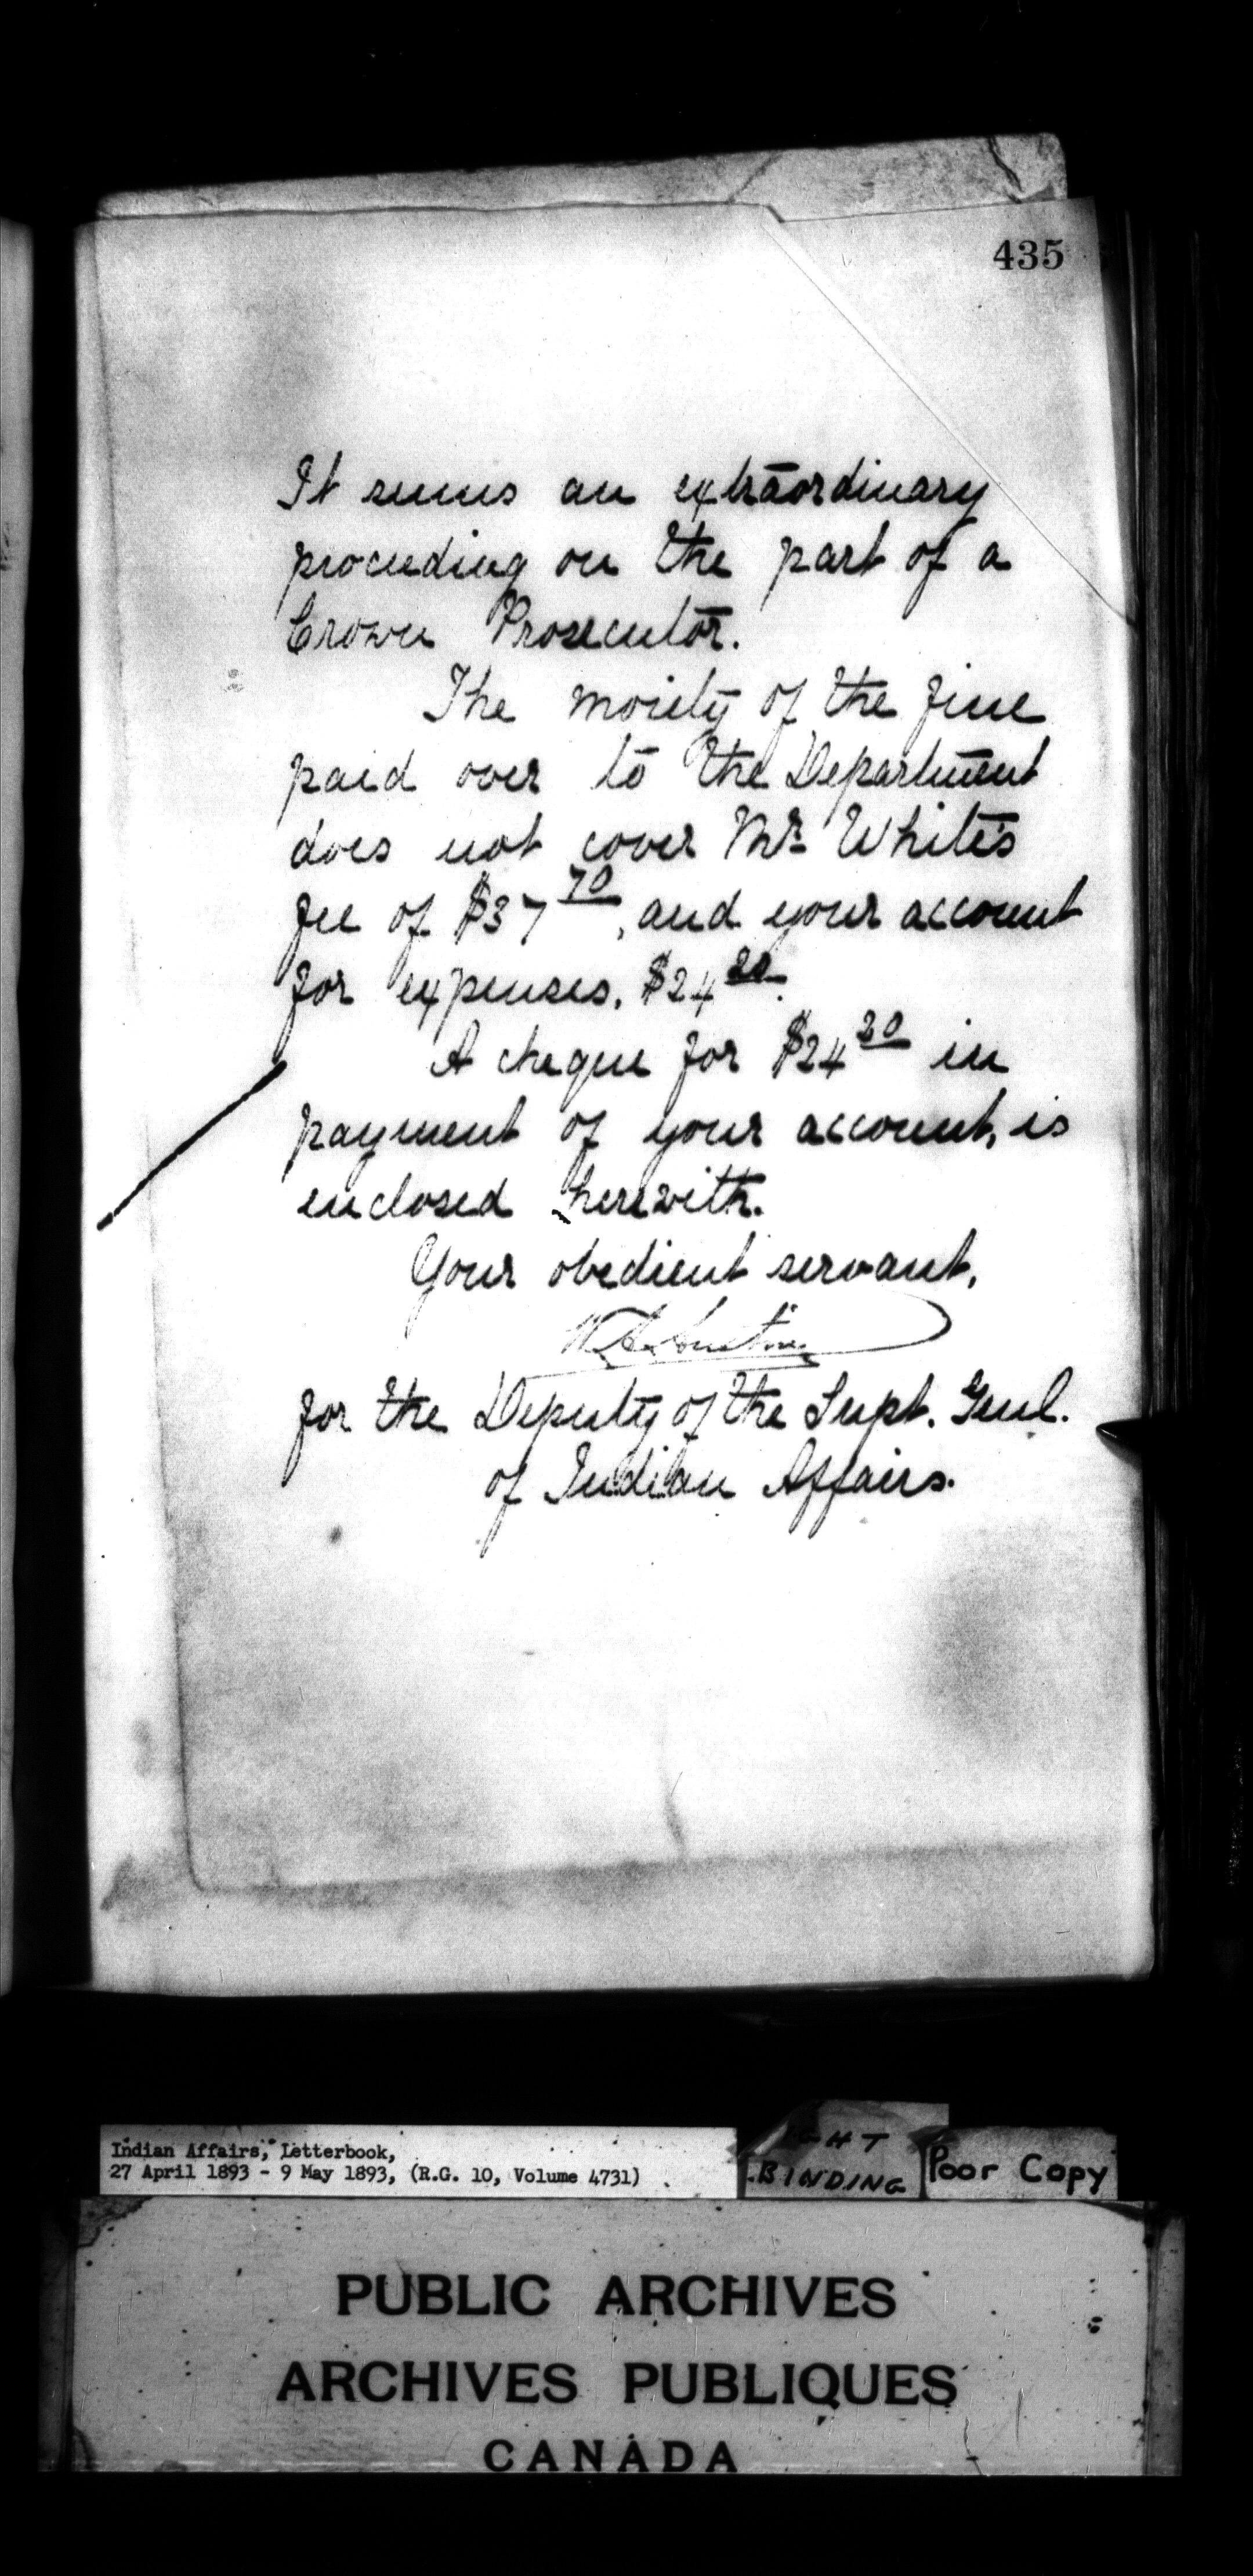 435
It seems an extraordinary
proceeding on the part of a
Crown Prosecutor.
The moiety of the fine
paid over to the Department
does not cover Mr. White's
fee of $37 70, and your account
for expenses, $24 20.
A cheque for $24 20 in
payment of your account, is
enclosed herewith.
Your obedient servant,
for the Deputy of the Supt. Genl.
of Indian Affairs.
Indian Affairs, Letterbook,
27 April 1893 - 9 May 1893, (R.G. 10, Volume 4731)
BINDING
Poor Copy
PUBLIC ARCHIVES
ARCHIVES PUBLIQUES
CANADA